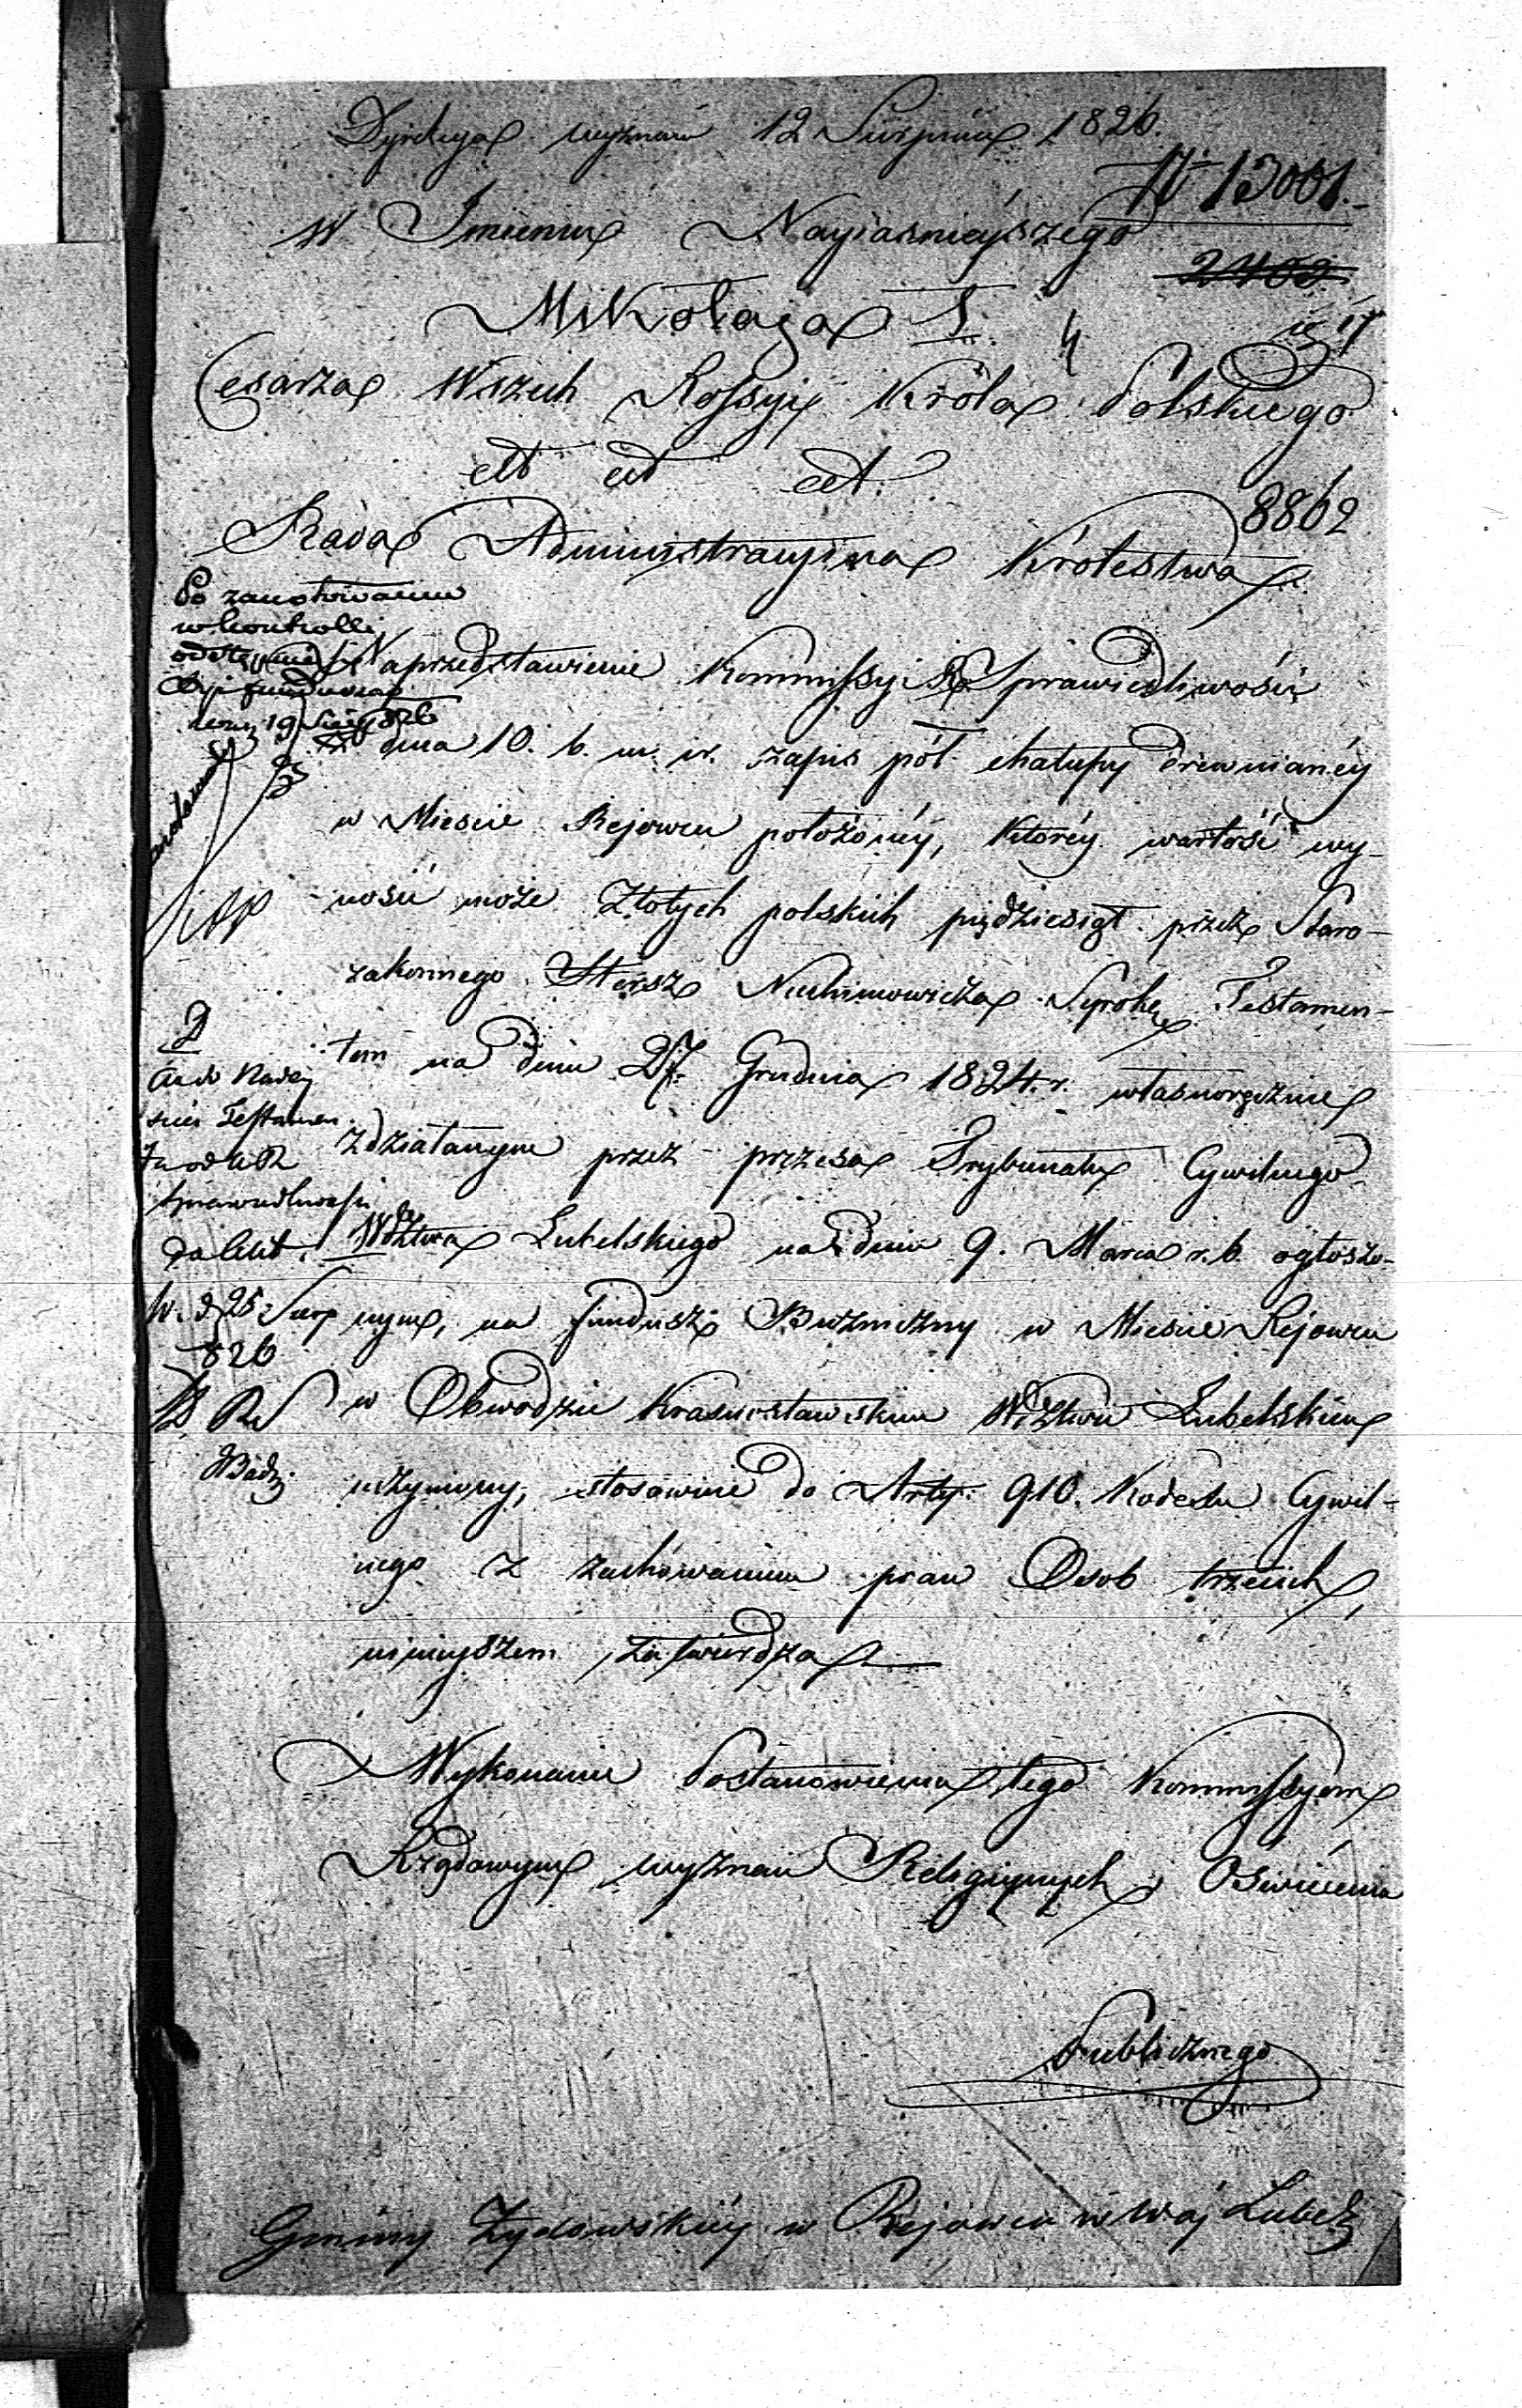 Dyrekcya wyznań 12 Sierpnia 1826.
N 13001.
W Imieniu Nayiaśnieyszego
2402
Mikołaja I.
4
Cesarza Wszech Rossyi Króla Polskiego
ett ett ett.
8862
Rada Administracyina Królestwa
Po zanotowaniu
w kontrolli
Na przedstawienie Kommissyi R Sprawiedliwości
19 Sierp 826
z dnia 10. b. m. i r. zapis pół chałupy drewnianéy
w Mieście Rejowcu położonéy, któréy wartość wy-
nosić może Złotych polskich piędziesiąt przez Staro-
zakonnego Hersz Nuchimowicza Syrokę Testamen-
tem na dniu 27. Grudnia 1824. r. własnoręcznie
zdziałanym przez prezesa Trybunału Cywilnego
Wdztwa Lubelskiego na dniu 9. Marca r. b. ogłoszo-
nym, na fundusz Bożniczny w Mieście Rejowcu
w Obwodzie Krasnostawskim Wdztwie Lubelskim
uczyniony, stosownie do Arty. 910. Kodexu Cywil-
nego z zachowaniem praw Osob trzecich,
ninieyszem zatwierdza
D
Testamen
tu od KR
Sprawiedliwości
W. d 25 Sierp
826
Wykonanie Postanowienia tego Kommissyom
Rządowym wyznań Religiynych i Oświecenia
Publicznego
Gminy Żydowskiéy w Rejowcu w Woj Lubelz